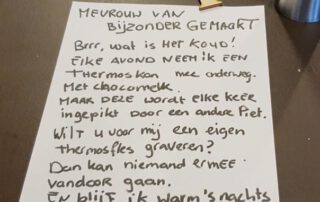 MEVROUW VAN
BIJZONDER GEMAAKT
Brrr, wat is HET KOUD!
ELKE AVOND NEEM IK EEN
THERMOSKAN mee onderweg.
Met chocomelk.
MAAR DEZE WORDT ELKE KEER
ingepikt Door een andere Piet.
WILT U voor mij een eigen
thermosfles graveren?
Dan kan niemand ermee
vandoor gaan.
EN BLIJF ik warm 's nachts